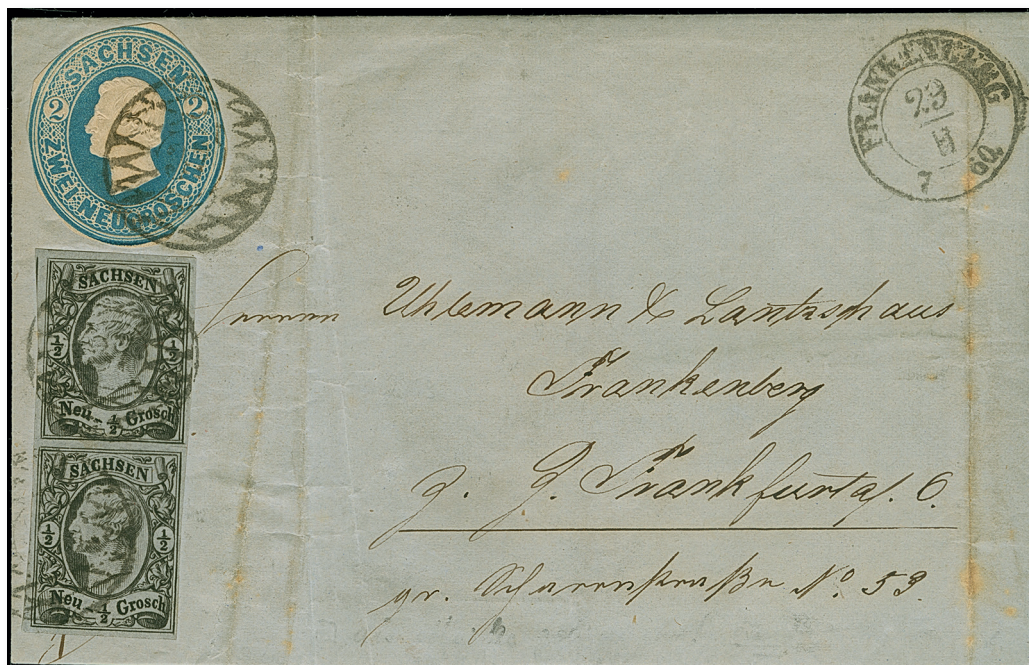 SACHSEN
2 2
ZWEI NEUGROSCHEN
FRANKENBERG
23
II
7
60
SACHSEN
1/2 1/2
Neu 1/2 Grosch
SACHSEN
1/2 1/2
Neu 1/2 Grosch
Herren Uhlemann & Lantzsch aus
Frankenberg
z. Z. Frankfurt a/. O.
gr. Scharrnstraße No. 53.